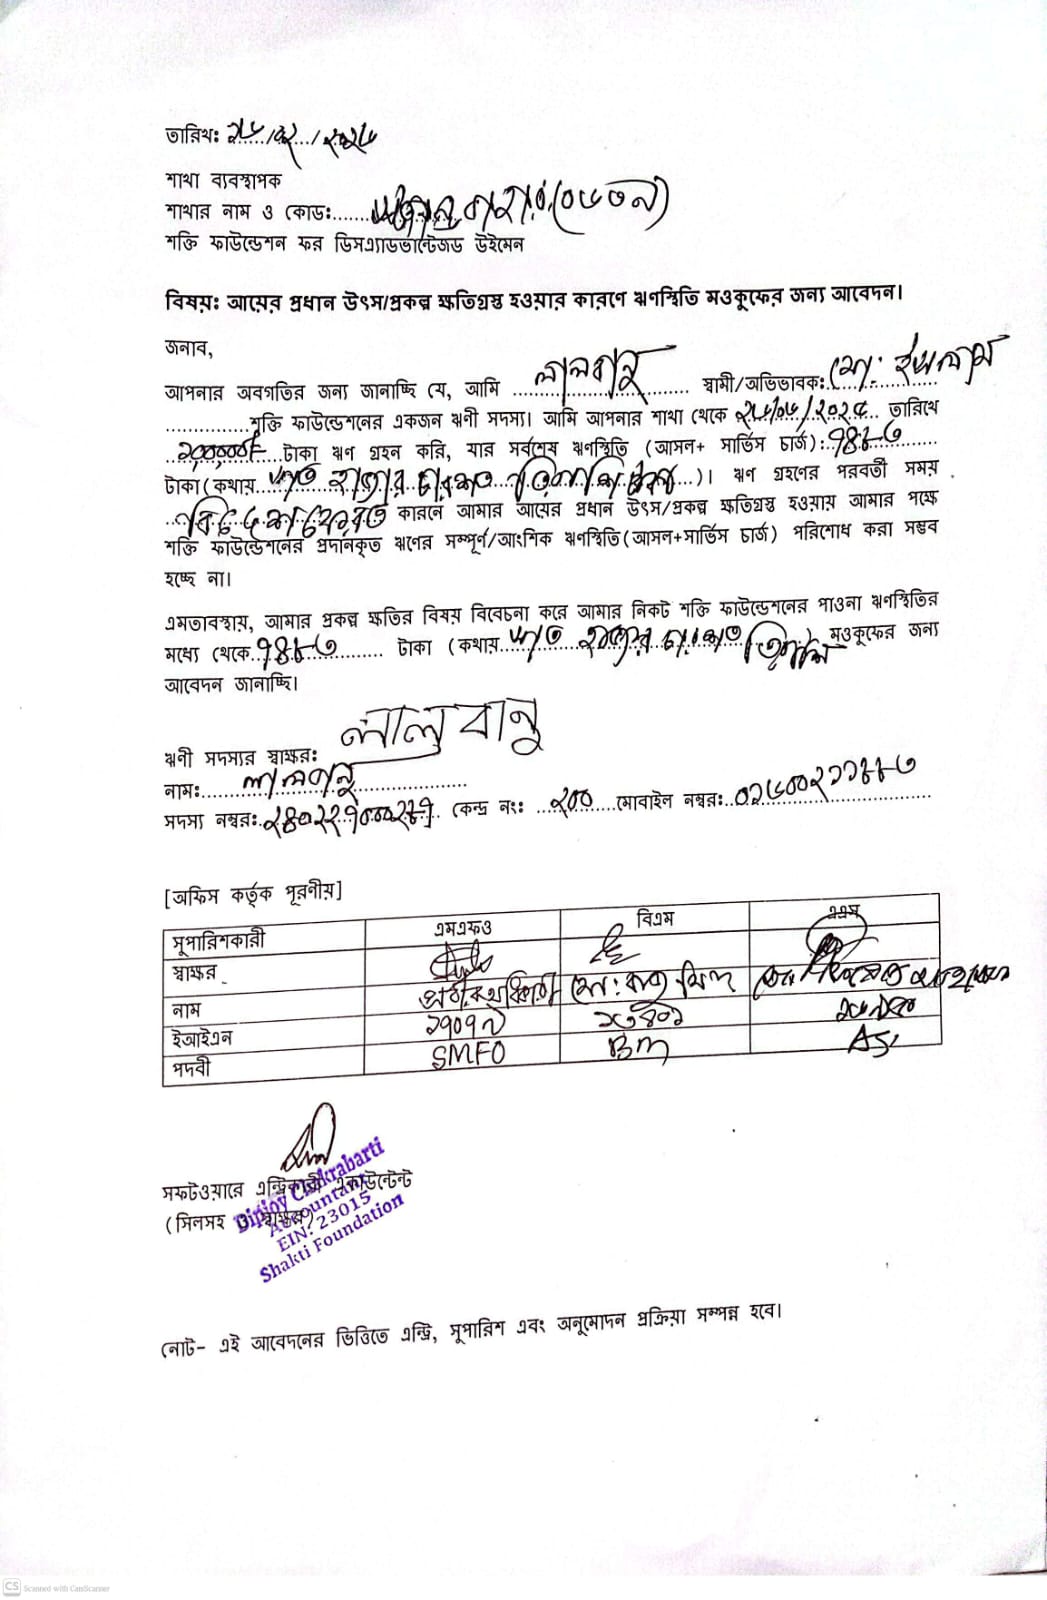 তারিখঃ
শাখা ব্যবস্থাপক
শাখার নাম ও কোড:
শক্তি ফাউন্ডেশন ফর ডিসএ্যাডভান্টেজড উইমেন
বিষয়: আয়ের প্রধান উৎস/প্রকল্প ক্ষতিগ্রস্ত হওয়ার কারণে ঋণস্থিতি মওকুফের জন্য আবেদন।
জনাব,
আপনার অবগতির জন্য জানাচ্ছি যে, আমি লালবানু স্বামী/অভিভাবক: মো: ইসলাম
শক্তি ফাউন্ডেশনের একজন ঋণী সদস্য। আমি আপনার শাখা থেকে তারিখে
টাকা ঋণ গ্রহন করি, যার সর্বশেষ ঋণস্থিতি (আসল+ সার্ভিস চার্জ): ৭৪৮৩
টাকা (কথায় সাত হাজার চারশত তিরাশি টাকা)। ঋণ গ্রহণের পরবর্তী সময়
কারনে আমার আয়ের প্রধান উৎস/প্রকল্প ক্ষতিগ্রস্ত হওয়ায় আমার পক্ষে
শক্তি ফাউন্ডেশনের প্রদানকৃত ঋণের সম্পূর্ণ/আংশিক ঋণস্থিতি(আসল+সার্ভিস চার্জ) পরিশোধ করা সম্ভব
হচ্ছে না।
এমতাবস্থায়, আমার প্রকল্প ক্ষতির বিষয় বিবেচনা করে আমার নিকট শক্তি ফাউন্ডেশনের পাওনা ঋণস্থিতির
মধ্যে থেকে ৭৪৮৩ টাকা (কথায় সাত হাজার চারশত তিরাশি মওকুফের জন্য
আবেদন জানাচ্ছি।
ঋণী সদস্যর স্বাক্ষর: লালু বানু
নাম: লালবানু
সদস্য নম্বর: কেন্দ্র নং: ২০০ মোবাইল নম্বর:
[অফিস কর্তৃক পূরনীয়]
সুপারিশকারী এমএফও বিএম এএস
স্বাক্ষর
নাম
ইআইএন
পদবী SMFO BM AS
সফটওয়ারে এন্ট্রিকারী একাউন্টেন্ট
(সিলসহ স্বাক্ষর)
Dipjoy Chakrabarti
Accountant
EIN: 23015
Shakti Foundation
নোট- এই আবেদনের ভিত্তিতে এন্ট্রি, সুপারিশ এবং অনুমোদন প্রক্রিয়া সম্পন্ন হবে।
CS Scanned with CamScanner